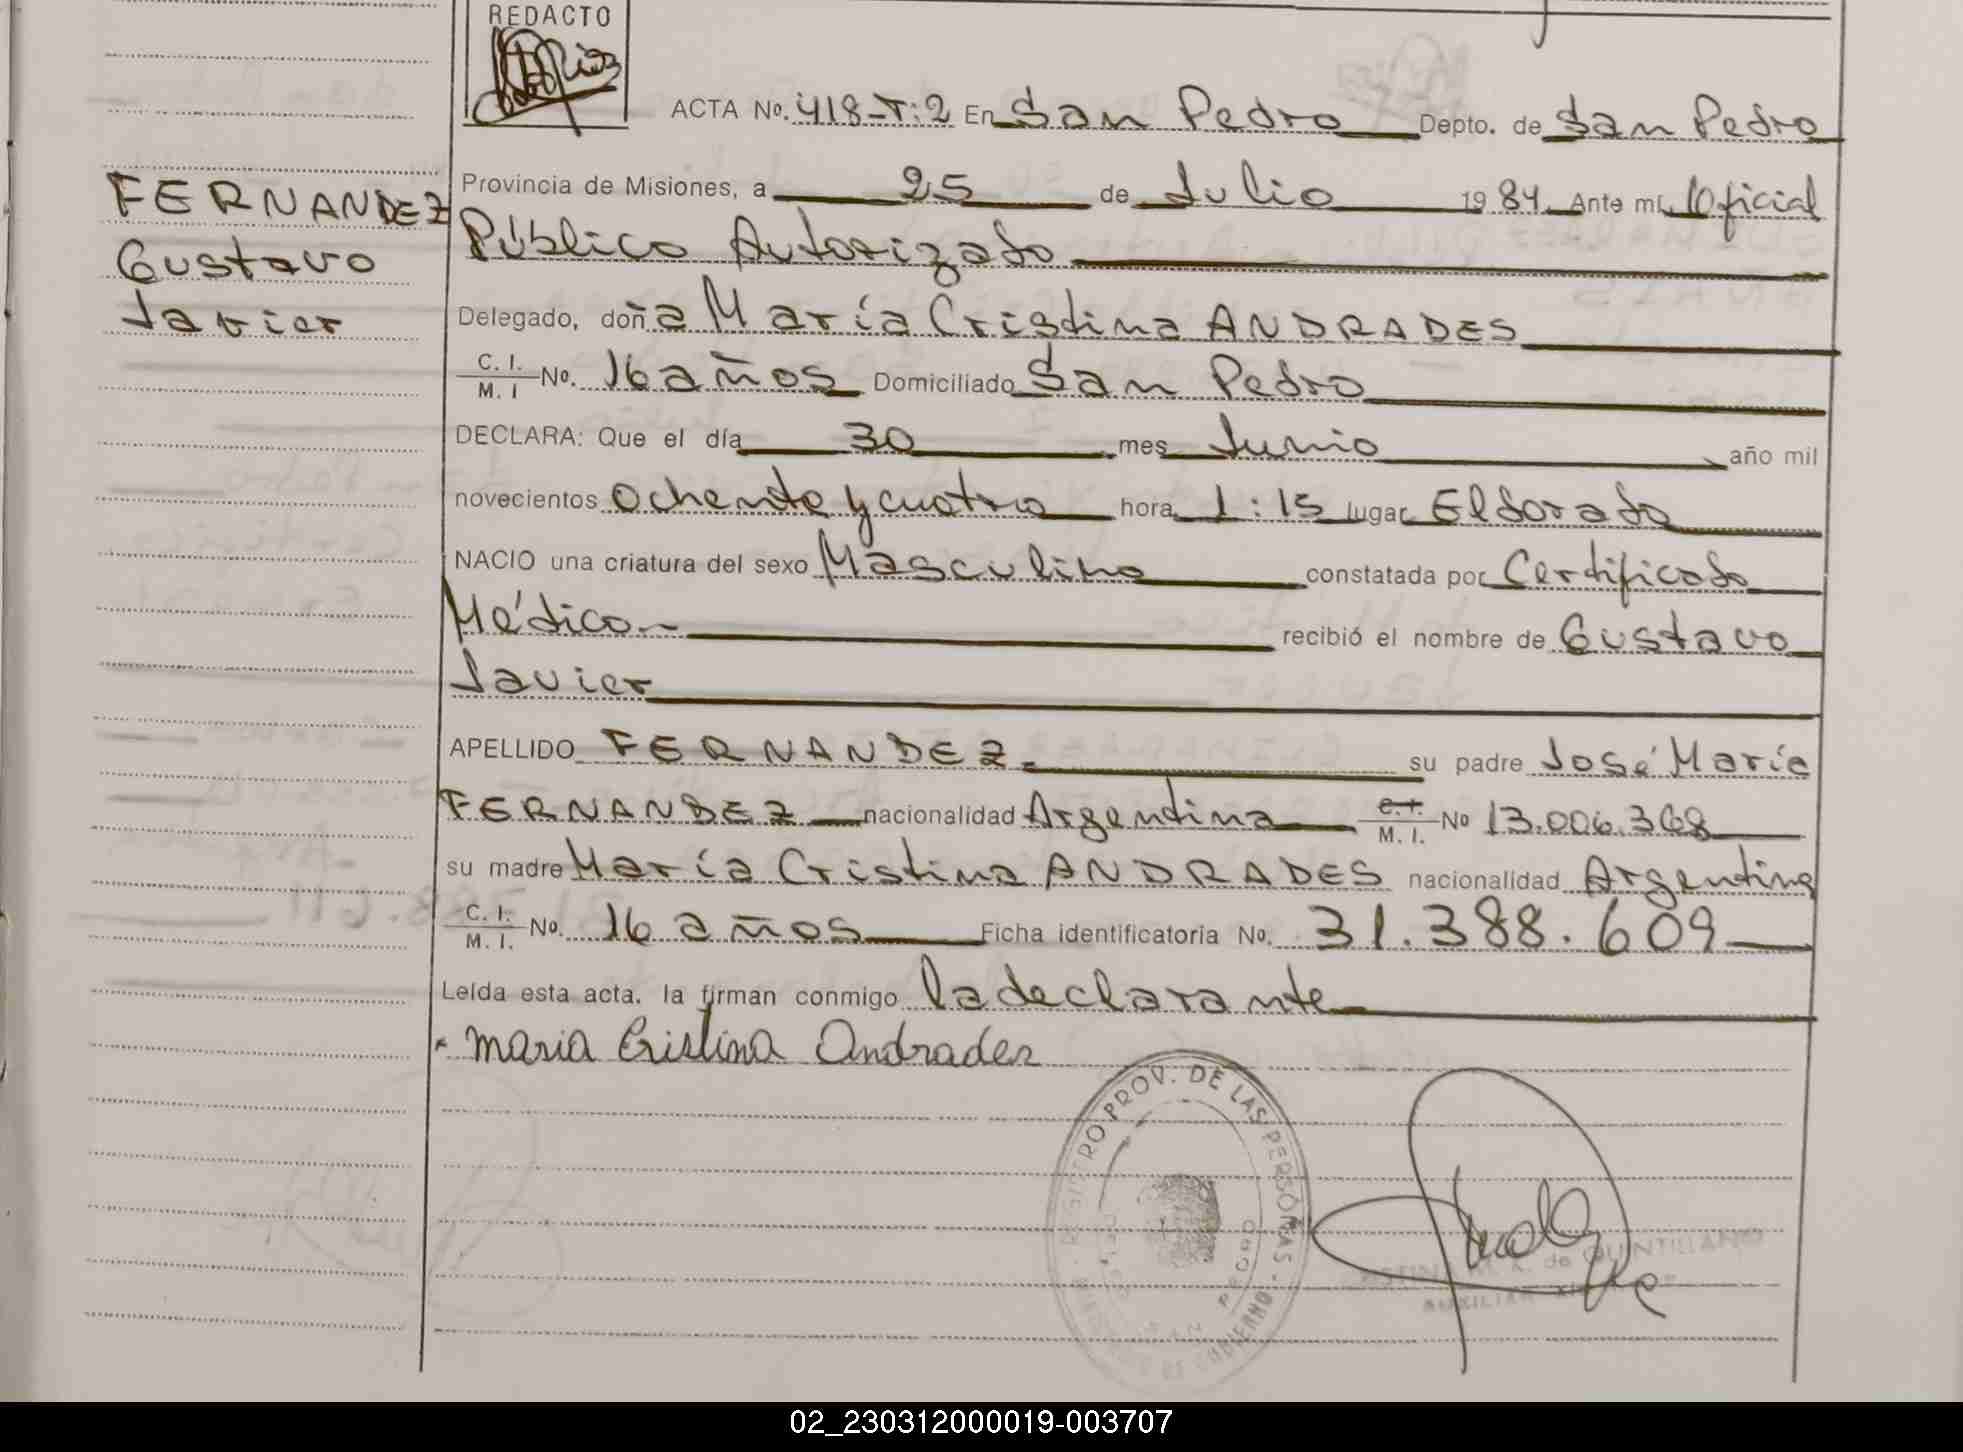 REDACTO
ACTA No. 418-T:2 En San Pedro Depto. de San Pedro
FERNANDEZ
Gustavo
Javier
Provincia de Misiones, a 25 de Julio 1984 Ante mí, Oficial
Público Autorizado
Delegado, doña María Cristina ANDRADES
C. I. M. I No. 16 años Domiciliado San Pedro
DECLARA: Que el día 30 mes Junio año mil
novecientos Ochenta y cuatro hora 1:15 lugar Eldorado
NACIO una criatura del sexo Masculino constatada por Certificado
Médico recibió el nombre de Gustavo
Javier
APELLIDO FERNANDEZ su padre José María
FERNANDEZ nacionalidad Argentina C.I. M. I. No 13.006.368
su madre María Cristina ANDRADES nacionalidad Argentina
C. I. M. I. No. 16 años Ficha identificatoria No. 31.388.609
Leída esta acta, la firman conmigo la declarante
Maria Cristina Andrades
REGISTRO PROV. DE LAS PERSONAS
DE GOBIERNO
de QUINTILLANO
AUXILIAR
02_230312000019-003707